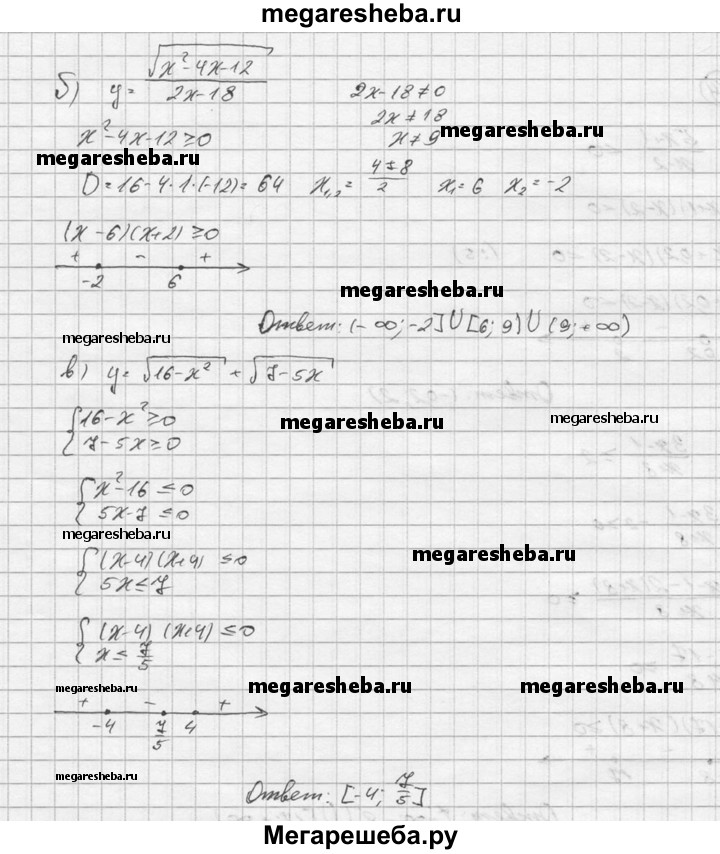 megaresheba.ru
б) y = √(x²-4x-12) / (2x-18)    2x-18≠0
2x≠18
x²-4x-12≥0    x≠9    megaresheba.ru
megaresheba.ru
D=16-4·1·(-12)=64    x₁,₂ = (4±8)/2    x₁=6    x₂=-2
(x-6)(x+2)≥0
+ - +
-2 6
megaresheba.ru
Ответ: (-∞; -2]∪[6; 9)∪(9; +∞)
megaresheba.ru
в) y = √(16-x²) + √(7-5x)
{ 16-x²≥0
7-5x≥0
megaresheba.ru    megaresheba.ru
megaresheba.ru
{ x²-16≤0
5x-7≤0
megaresheba.ru
{ (x-4)(x+4)≤0    megaresheba.ru
5x≤7
{ (x-4)(x+4)≤0
x≤7/5
megaresheba.ru    megaresheba.ru    megaresheba.ru
+ - +
-4 7/5 4
megaresheba.ru
Ответ: [-4; 7/5]
Мегарешеба.ру